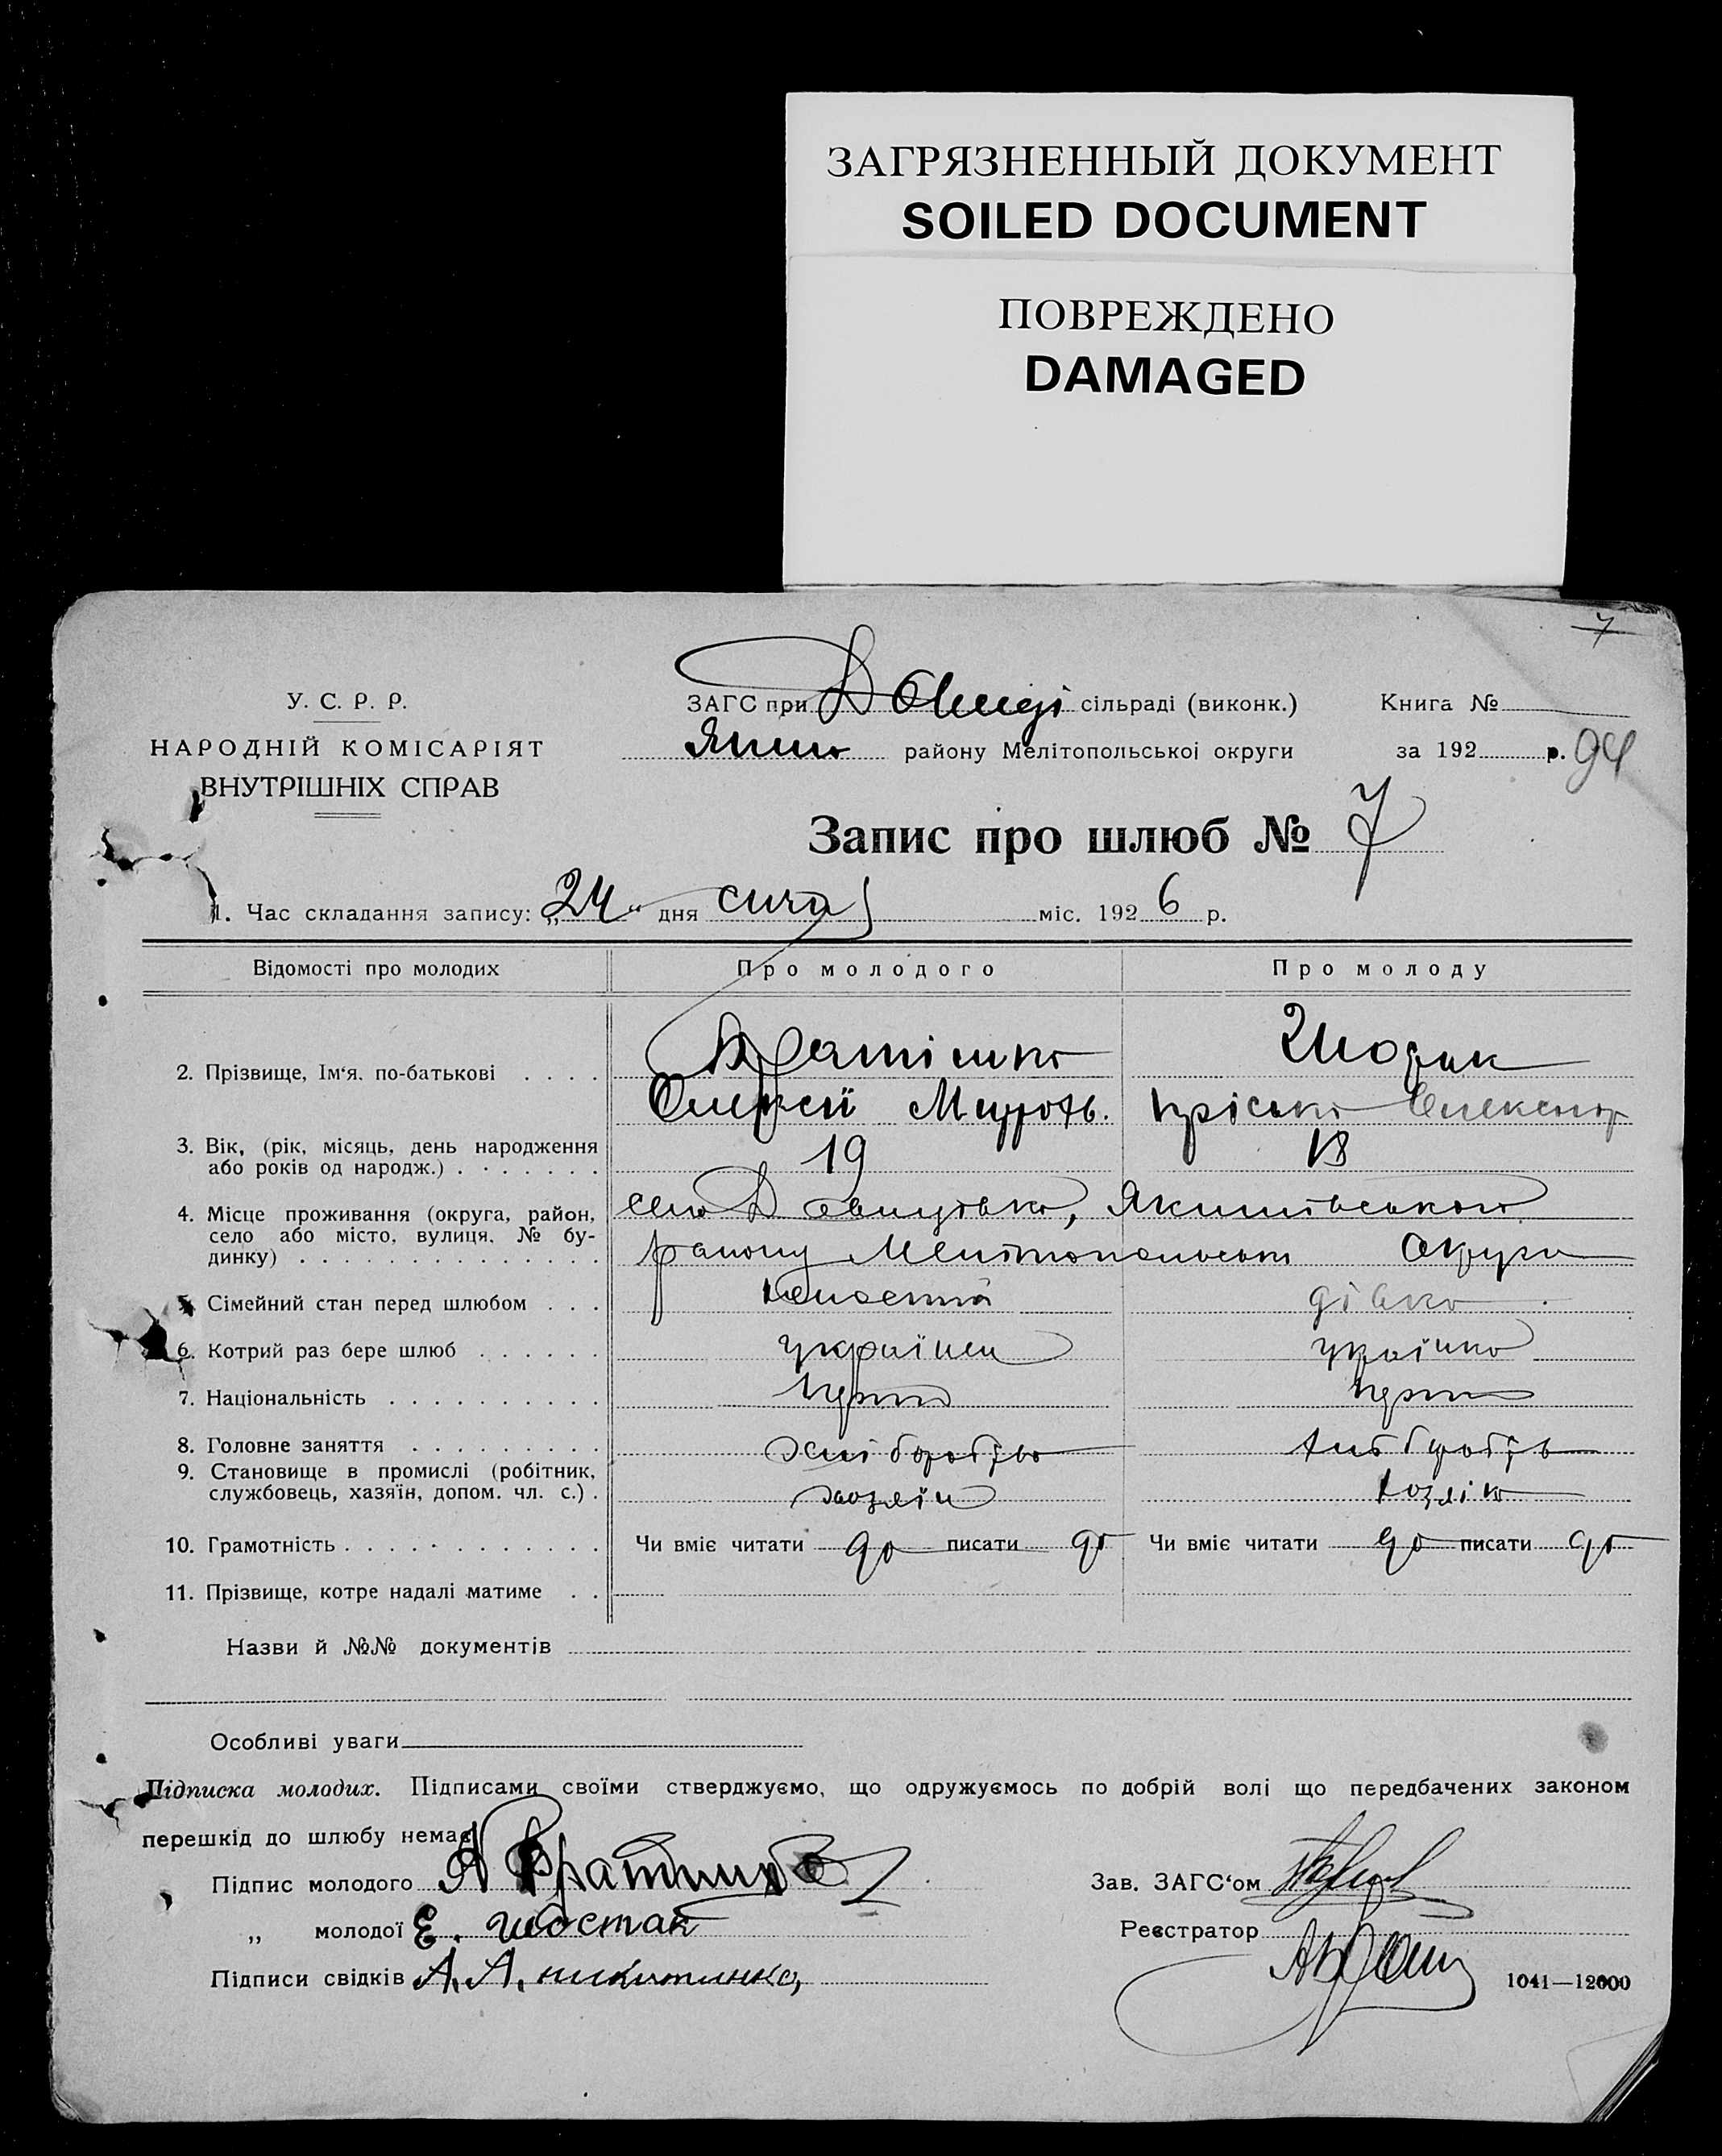 ЗАГРЯЗНЕННЫЙ ДОКУМЕНТ
SOILED DOCUMENT
ПОВРЕЖДЕНО
DAMAGED
7
У. С. Р. Р.
НАРОДНІЙ КОМІСАРІЯТ
ВНУТРІШНІХ СПРАВ
ЗАГС при сільраді (виконк.)
Яким району Мелітопольської округи
Книга №
за 192 р. 94
Запис про шлюб № 7
1. Час складання запису: „24“ дня січня міс. 1926 р.
Відомості про молодих Про молодого Про молоду
2. Прізвище, Ім‘я. по-батькові . . . .
Олексій
3. Вік, (рік, місяць, день народження
або років од народж.) . . . . . . . 19 18
4. Місце проживання (округа, район,
село або місто, вулиця, № бу-
динку) . . . . . . . . . . . . . .
село Давидівка, Якимівського
району Мелітопольськ Округи
5. Сімейний стан перед шлюбом . . . дівка
6. Котрий раз бере шлюб . . . . . . українец українка
7. Національність . . . . . . . . . .
8. Головне заняття . . . . . . . . .
9. Становище в промислі (робітник,
службовець, хазяїн, допом. чл. с.) . хозяїн
10. Грамотність . . . . . . . . . . . . Чи вміє читати да писати да Чи вміє читати да писати да
11. Прізвище, котре надалі матиме . .
Назви й №№ документів
Особливі уваги
Підписка молодих. Підписами своїми стверджуємо, що одружуємось по добрій волі що передбачених законом
перешкід до шлюбу немає
Підпис молодого А
Зав. ЗАГС‘ом
„ молодої Е. шостак
Реєстратор
Підписи свідків А. А. никитинко
1041—12000